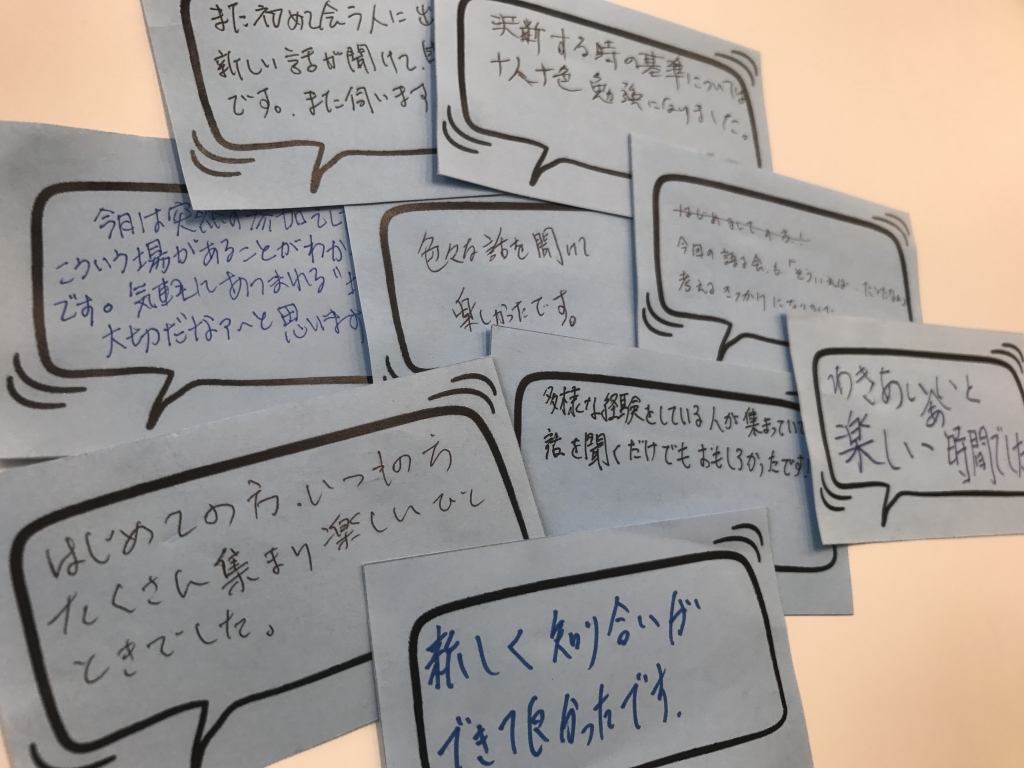 また初めて会う人に出
新しい話が聞けて
です。また伺います
決断する時の基準については
十人十色 勉強になりました。
今日は突然の参加でし
こういう場があることがわか
です。気軽にあつまれる"
大切だなァ〜と思います
色々な話を聞けて
楽しかったです。
はじめまして
今回の語る会も「そういえば
考えるきっかけになりました
わきあいあいと
楽しい時間でした
多様な経験をしている人が集まってい
話を聞くだけでもおもしろかったです!
はじめての方、いつもの方
たくさん集まり楽しいひと
ときでした。
新しく知り合いが
できて良かったです.